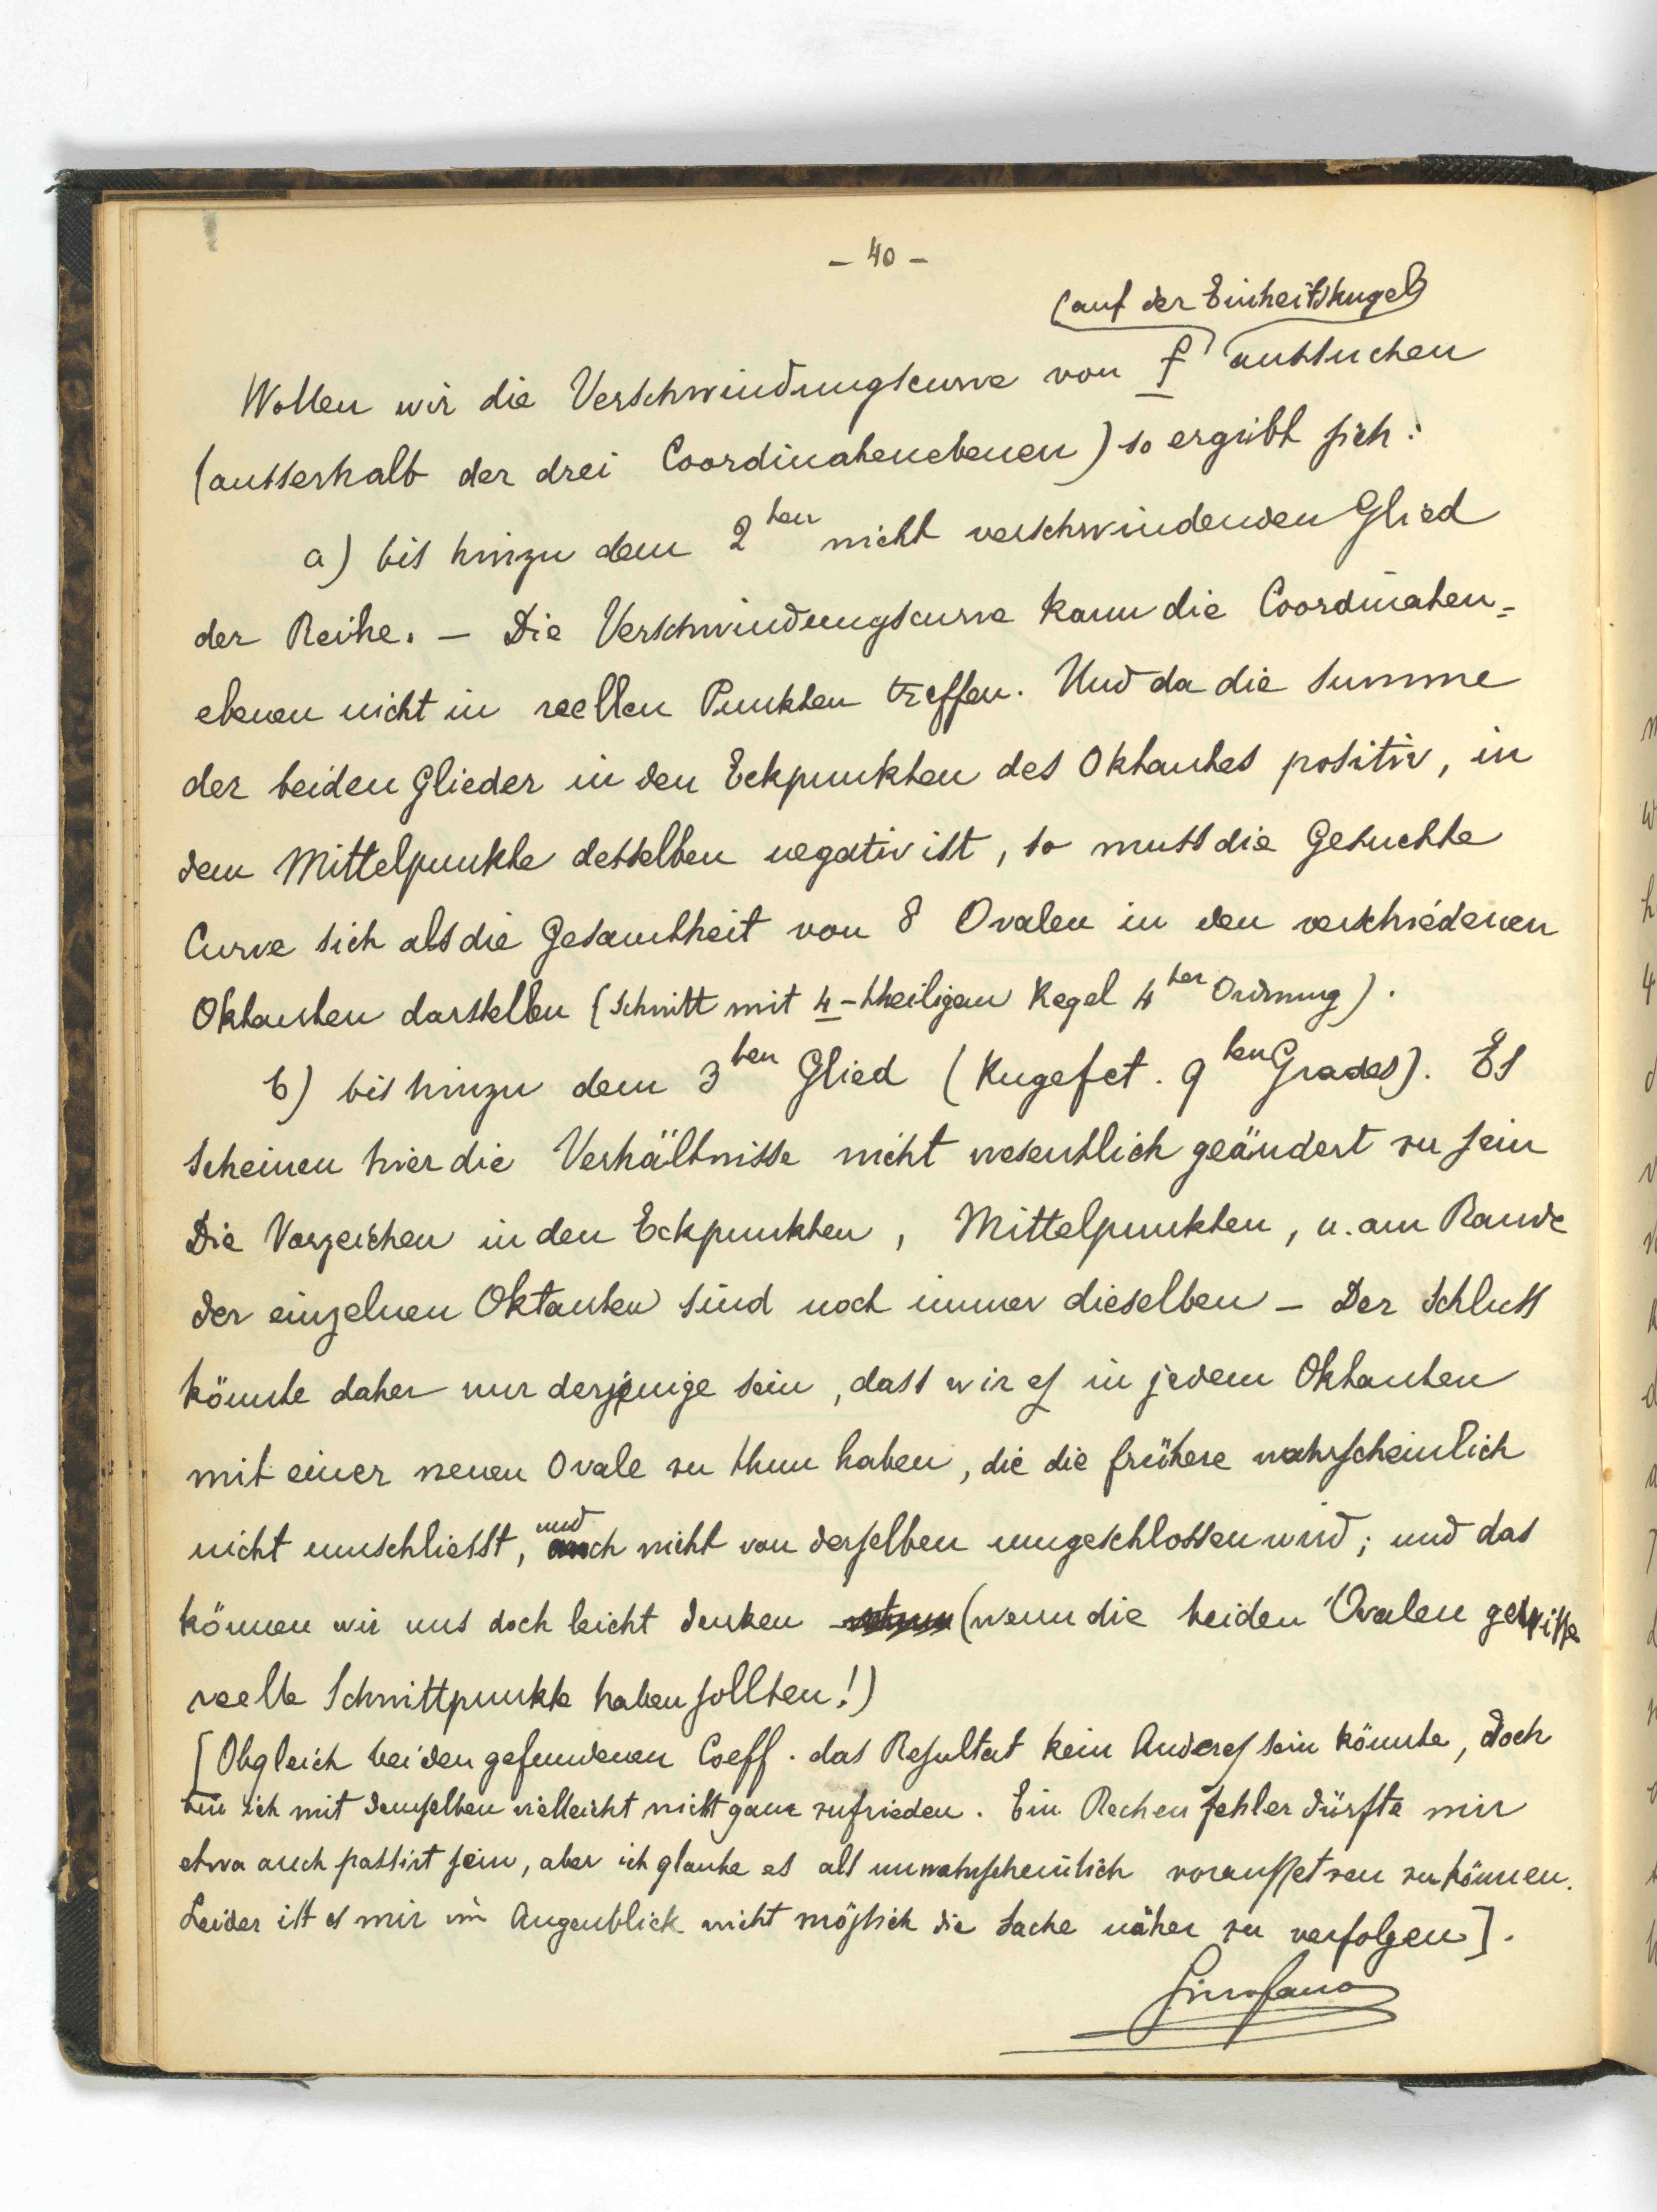 – 40 –
(auf der Einheitskugel)
Wollen wir die Verschwindungscurve von f aufsuchen
(ausserhalb der drei Coordinatenebenen) so ergibt sich:
a) bis hinzu dem 2ten nicht verschwindenden Glied
der Reihe. – Die Verschwindungscurve kann die Coordinaten=
ebenen nicht in reellen Punkten treffen. Und da die Summe
der beiden Glieder in den Eckpunkten des Oktantes positiv, in
dem Mittelpunkte desselben negativ ist, so muss die Gesuchte
Curve sich als die Gesamtheit von 8 Ovalen in den verschiedenen
Oktanten darstellen (Schnitt mit 4-theiligem Kegel 4ter Ordnung).
b) bis hinzu dem 3ten Glied (Kugefct. 9ten Grades). Es
scheinen hier die Verhältnisse nicht wesentlich geändert zu sein
Die Vorzeichen in den Eckpunkten, Mittelpunkten, u. am Rande
der einzelnen Oktanten sind noch immer dieselben – Der Schluss
könnte daher nur derjenige sein, dass wir es in jedem Oktanten
mit einer neuen Ovale zu thun haben, die die frühere wahrscheinlich
nicht umschliesst, und auch nicht von derselben umgeschlossen wird; und das
können wir uns doch leicht denken (wenn die beiden Ovalen gewisse
reelle Schnittpunkte haben sollten!)
[Obgleich bei den gefundenen Coeff. das Resultat kein Anderes sein könnte, doch
bin ich mit demselben vielleicht nicht ganz zufrieden. Ein Rechenfehler dürfte mir
etwa auch passirt sein, aber ich glaube es als unwahrscheinlich voraussetzen zu können.
Leider ist es mir im Augenblick nicht möglich die Sache näher zu verfolgen].
Gino Fano